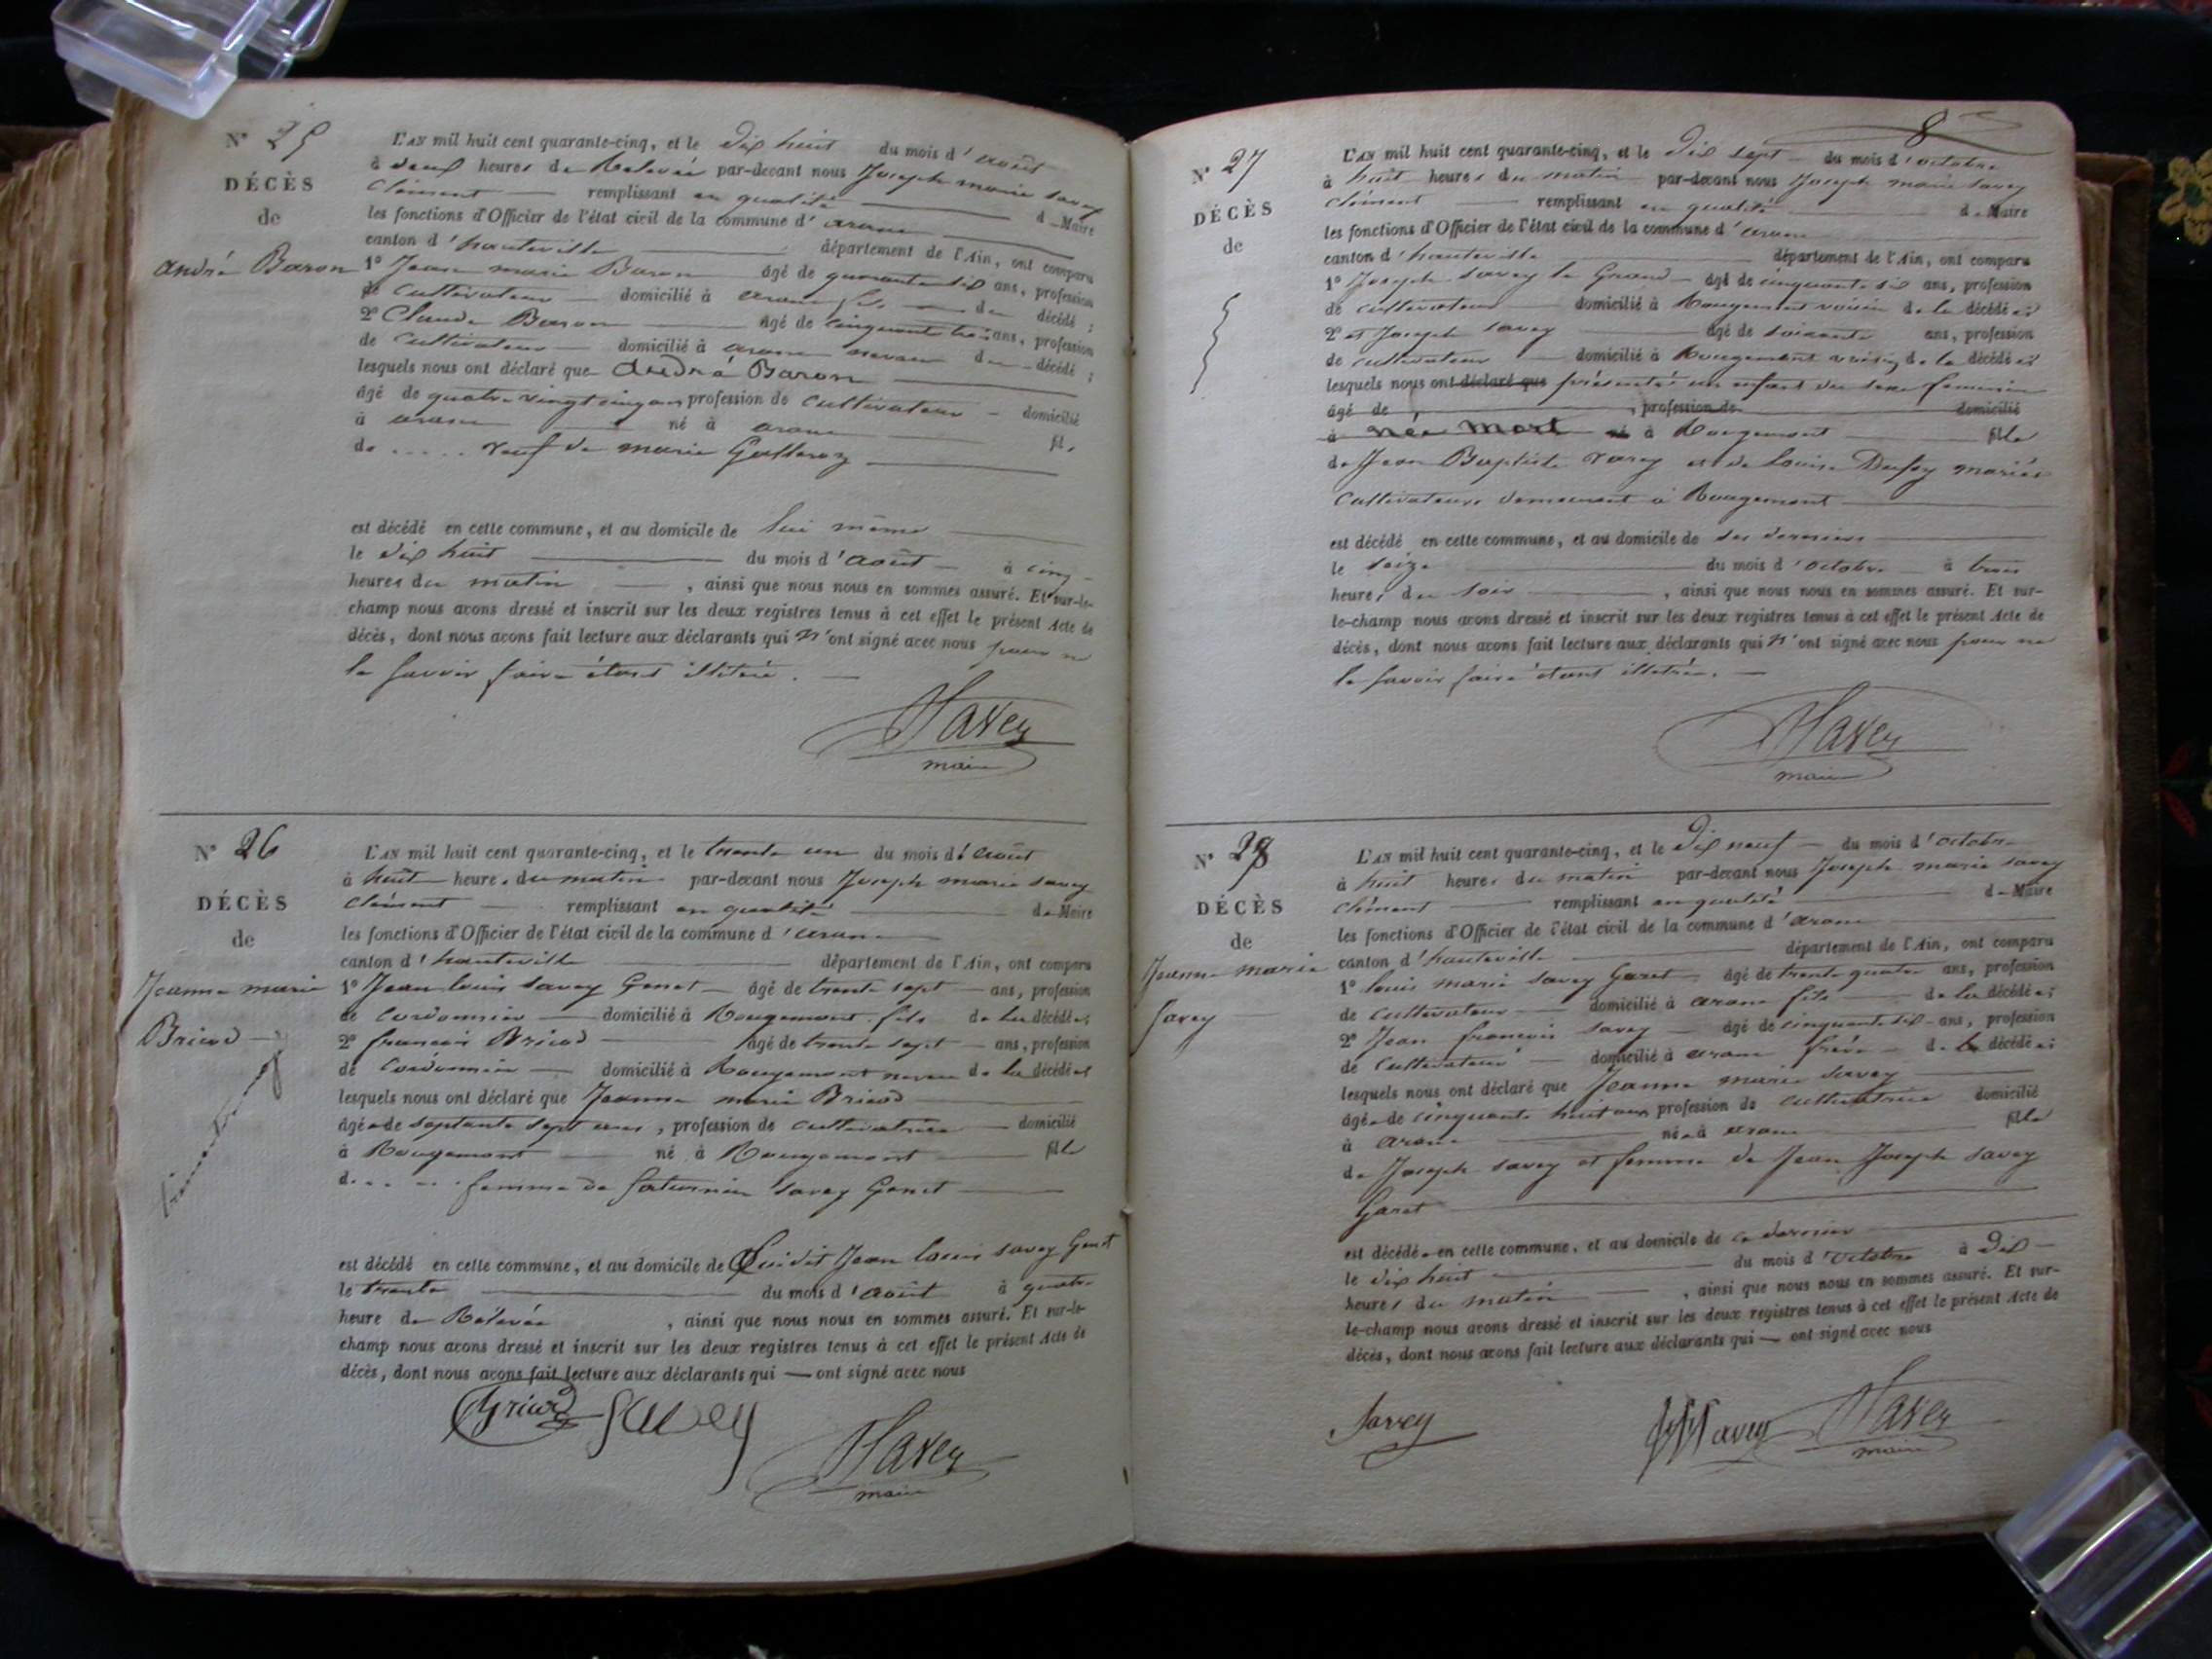 N° 25
DÉCÈS
de
andré Baron
L'AN mil huit cent quarante-cinq, et le dix huit du mois d'août
à deux heures de Relevée par-devant nous Joseph marie savey
clément remplissant en qualité de Maire
les fonctions d'Officier de l'état civil de la commune d'aranc
canton d'hauteville département de l'Ain, ont comparu
1° Jean marie Baron âgé de quarante six ans, profession
de cultivateur domicilié à aranc fils du décédé ;
2° Claude Baron âgé de cinquante trois ans, profession
de cultivateur domicilié à aranc neveu du décédé ;
lesquels nous ont déclaré que André Baron
âgé de quatre vingt cinq ans profession de cultivateur domicilié
à aranc né à aranc fils
de ..... veuf de marie
est décédé en cette commune, et au domicile de lui même
le dix huit du mois d'août à cinq
heures du matin, ainsi que nous nous en sommes assuré. Et sur-le-
champ nous avons dressé et inscrit sur les deux registres tenus à cet effet le présent Acte de
décès, dont nous avons fait lecture aux déclarants qui n'ont signé avec nous pour ne
le savoir faire étant illitéré.
Savey
maire
N° 26
DÉCÈS
de
Jeanne marie
Bricod
L'AN mil huit cent quarante-cinq, et le trente un du mois d'août
à huit heures du matin par-devant nous Joseph marie savey
clément remplissant en qualité de Maire
les fonctions d'Officier de l'état civil de la commune d'aranc
canton d'hauteville département de l'Ain, ont comparu
1° Jean louis savey Genet âgé de trente sept ans, profession
de cordonnier domicilié à Rougemont fils de la décédée ;
2° françois Bricod âgé de trente sept ans, profession
de cordonnier domicilié à Rougemont neveu de la décédée
lesquels nous ont déclaré que Jeanne marie Bricod
âgée de septante sept ans, profession de cultivatrice domicilié
à Rougemont né à Rougemont fille
d..... femme de saturnin savey Genet
est décédé en cette commune, et au domicile de Jean louis savey Genet
le trente du mois d'août à quatre
heure de Relevée, ainsi que nous nous en sommes assuré. Et sur-le-
champ nous avons dressé et inscrit sur les deux registres tenus à cet effet le présent Acte de
décès, dont nous avons fait lecture aux déclarants qui — ont signé avec nous
Bricod Savey
Savey
maire
8
N° 27
DÉCÈS
de
L'AN mil huit cent quarante-cinq, et le dix sept du mois d'octobre
à huit heures du matin par-devant nous Joseph marie savey
clément remplissant en qualité de Maire
les fonctions d'Officier de l'état civil de la commune d'aranc
canton d'hauteville département de l'Ain, ont comparu
1° Joseph savey le Grand âgé de cinquante six ans, profession
de cultivateur domicilié à Rougemont voisin de la décédée
2° et Joseph savey âgé de soixante ans, profession
de cultivateur domicilié à Rougemont voisin de la décédée
lesquels nous ont déclaré que présenté un enfant du sexe feminin
âgé de, profession de domicilié
à née mort né à Rougemont fille
de Jean Baptiste savey et de louise mariés
cultivateurs demeurant à Rougemont
est décédé en cette commune, et au domicile de ses derniers
le seize du mois d'octobre à trois
heures du soir, ainsi que nous nous en sommes assuré. Et sur-
le-champ nous avons dressé et inscrit sur les deux registres tenus à cet effet le présent Acte de
décès, dont nous avons fait lecture aux déclarants qui n'ont signé avec nous pour ne
le savoir faire étant illetré.
Savey
maire
N° 28
DÉCÈS
de
Jeanne marie
savey
L'AN mil huit cent quarante-cinq, et le dix neuf du mois d'octobre
à huit heures du matin par-devant nous Joseph marie savey
clément remplissant en qualité de Maire
les fonctions d'Officier de l'état civil de la commune d'aranc
canton d'hauteville département de l'Ain, ont comparu
1° louis marie savey Garet âgé de trente quatre ans, profession
de cultivateur domicilié à aranc fils de la décédée ;
2° Jean françois savey âgé de cinquante six ans, profession
de cultivateur domicilié à aranc frère de la décédée ;
lesquels nous ont déclaré que Jeanne marie savey
âgée de cinquante huit ans profession de cultivatrice domicilié
à aranc née à aranc fille
de Joseph savey et femme de Jean Joseph savey
Garet
est décédée en cette commune, et au domicile de ce dernier
le dix huit du mois d'octobre à dix
heures du matin, ainsi que nous nous en sommes assuré. Et sur-
le-champ nous avons dressé et inscrit sur les deux registres tenus à cet effet le présent Acte de
décès, dont nous avons fait lecture aux déclarants qui — ont signé avec nous
Savey Savey Savey
maire